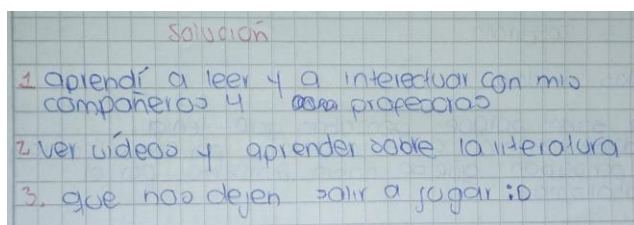 Solución
1 aprendí a leer y a interectuar con mis
compañeros y profesoras
2 ver videos y aprender sobre la literatura
3. que nos dejen salir a jugar :D